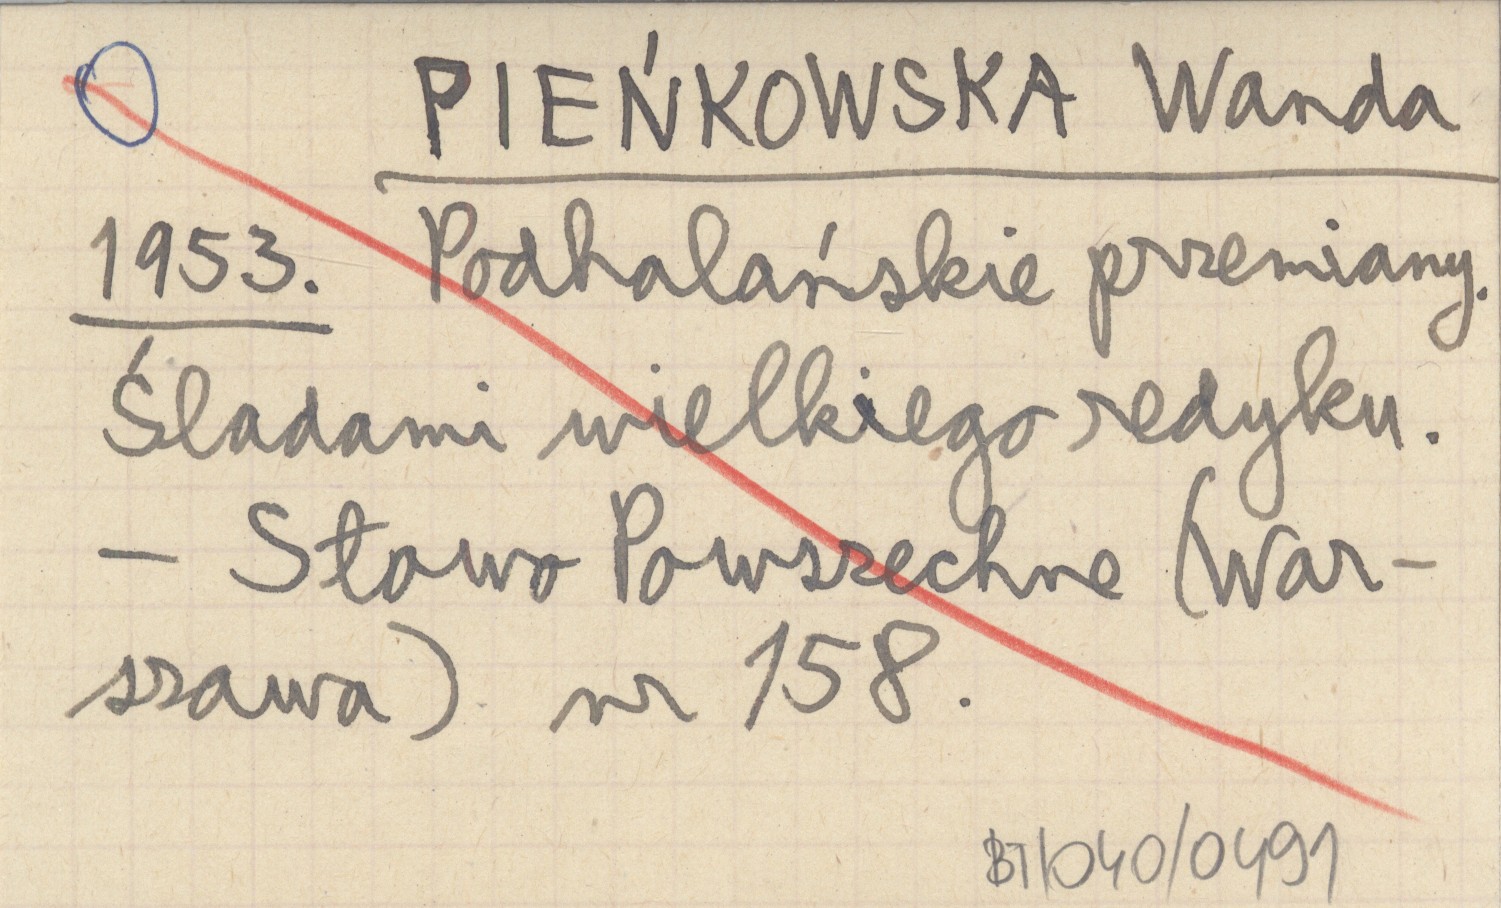 PIEŃKOWSKA Wanda
1953. Podhalańskie przemiany.
Śladami wielkiego redyku.
— Słowo Powszechne (War-
szawa) nr 158.
BT/040/0491